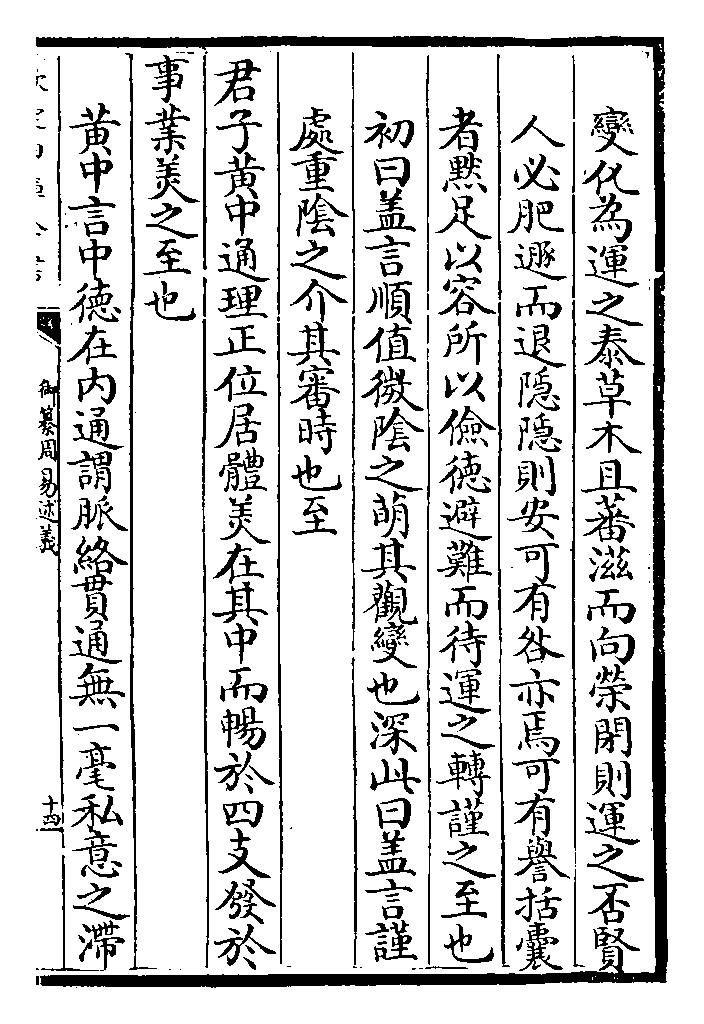 變化為運之泰草木且蕃滋而向榮閉則運之否賢
人必肥遯而退隠隠則安可有咎亦焉可有譽括囊
者黙足以容所以儉徳避難而待運之轉謹之至也
初曰盖言順值微隂之萌其觀變也深此曰盖言謹
處重隂之介其審時也至
君子黄中通理正位居體美在其中而暢於四支發於
事業美之至也
黄中言中徳在内通謂脈絡貫通無一毫私意之滯
御纂周易述義
十四